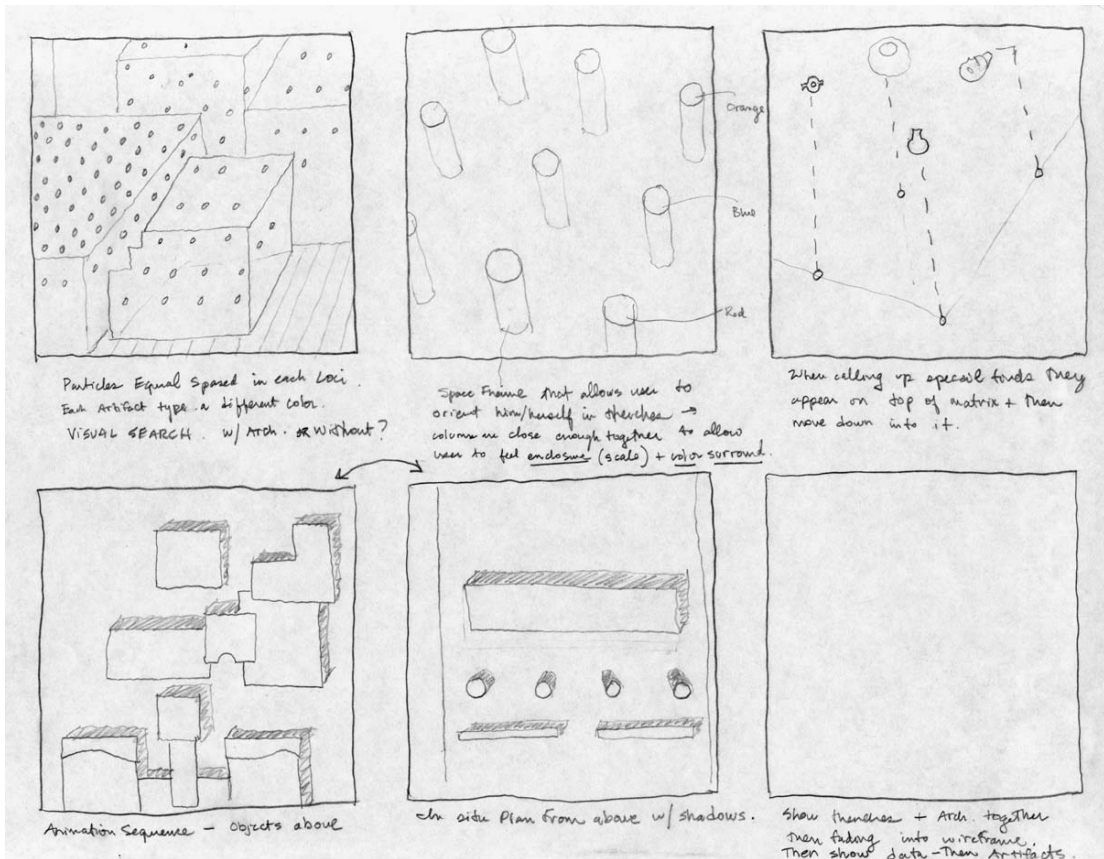 Orange
Blue
Red
Particles Equal Spaced in each Loci.
Each Artifact type a different color.
VISUAL SEARCH. w/ Arch. or Without?
Space Frame that allows user to
orient him/herself in trenches →
columns close enough together to allow
user to feel enclosure (scale) + color surround.
When calling up special finds they
appear on top of matrix + then
move down into it.
Animation Sequence - Objects above
In situ Plan from above w/ shadows.
Show trenches + Arch. together
Then fading into wireframe.
Then show data - Then Artifacts.